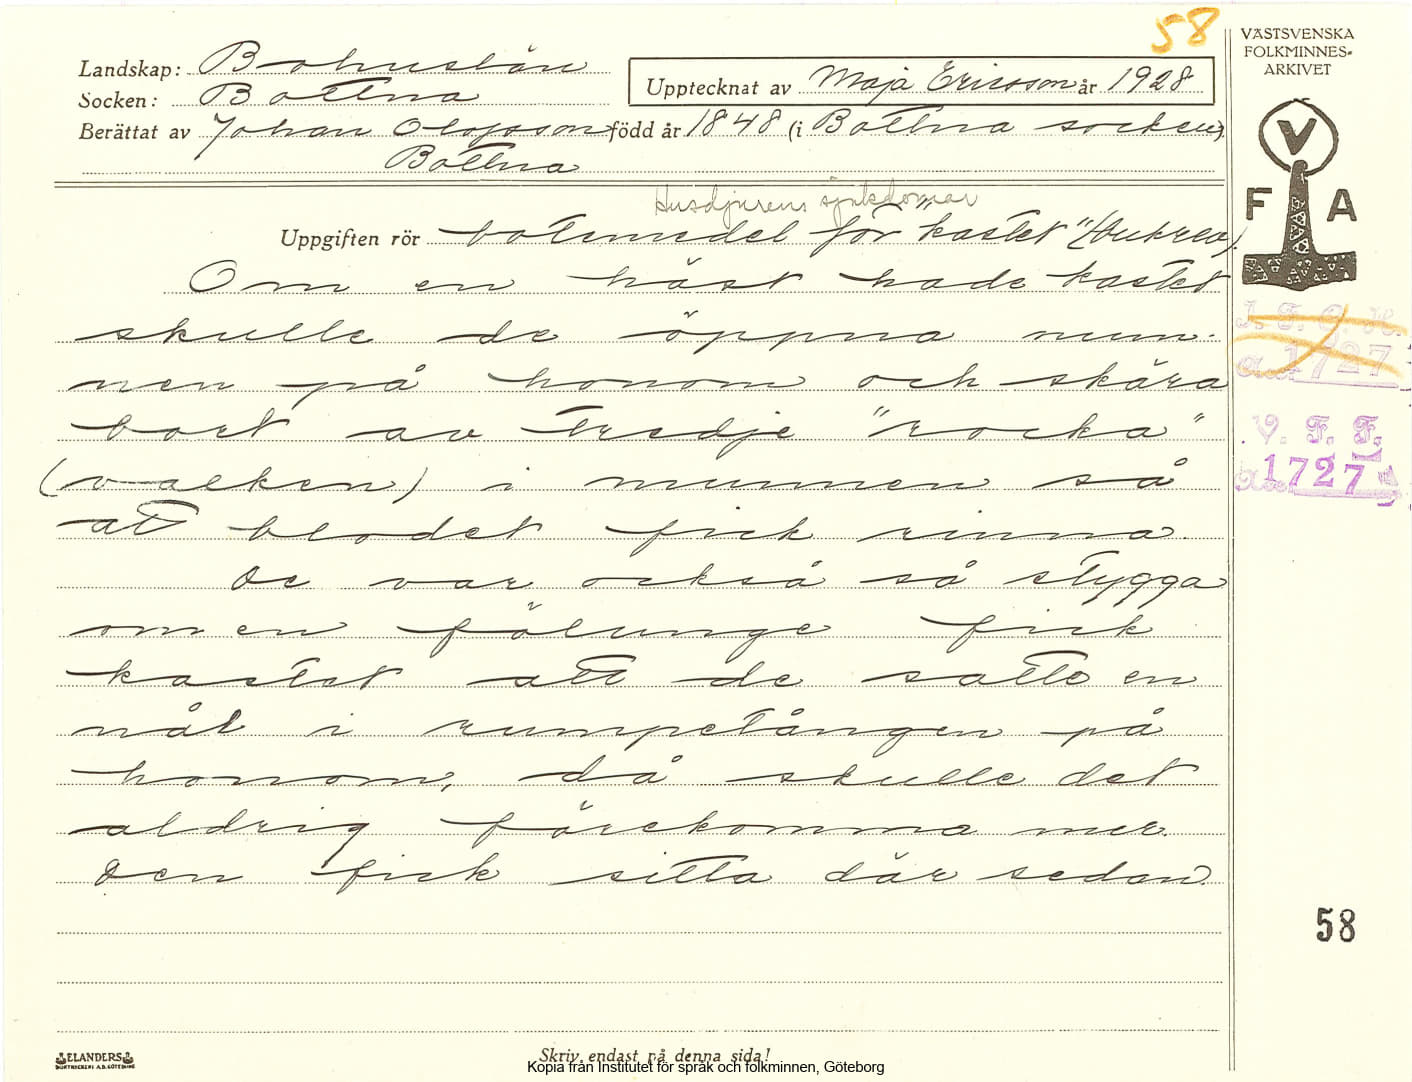 58
VÄSTSVENSKA
FOLKMINNES-
ARKIVET
Landskap: Bohuslän
Socken: Bottna
Upptecknat av Maja Ericsson år 1928
Berättat av Johan Olofsson född år 1848 (i Bottna socken).
Bottna
V
F A
Husdjurens sjukdomar
Uppgiften rör botemedel för "kastet"
Om en häst hade kastet
skulle de öppna mun-
nen på honom och skära
bort av tredje "rocka"
(valken) i munnen så
att blodet fick rinna.
De var också så stygga
om en fölunge fick
kastet att de satte en
nål i rumpetången på
honom, då skulle det
aldrig förekomma mer.
Den fick sitta där sedan.
1727
V. F. F.
1727
58
ELANDERS
BOKTRYCKERI A.B. GÖTEBORG
Skriv endast på denna sida!
Kopia från Institutet för språk och folkminnen, Göteborg